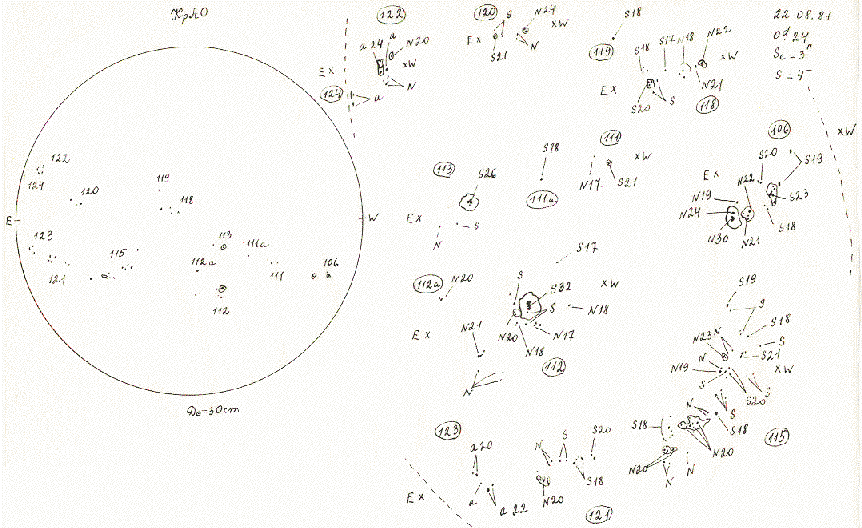 КрАО
22.08.81
122
a
a 24
N20
E x
x W
N
a
120
S
N24
x W
E x
S21
N
S18
119
S18
S17
N18
N22
x W
E x
N21
S20
S
118
122
121
120
119
118
E
W
123
121
115
113
112a
111a
111
106
112
113
S26
E x
S
N
S28
111a
111
x W
N17
S21
106
x W
S20
S19
E x
N22
N19
S23
N24
S18
N30
N21
S17
112a
N20
S
S32
x W
S
N18
E x
N21
N20
N18
N17
N
112
S19
S
S18
N23
N
S
S21
N
N19
x W
S
S20
S
N
S
S18
115
S18
N20
N20
N
N
123
a20
E x
a
a 22
N
S
S20
S18
N20
121